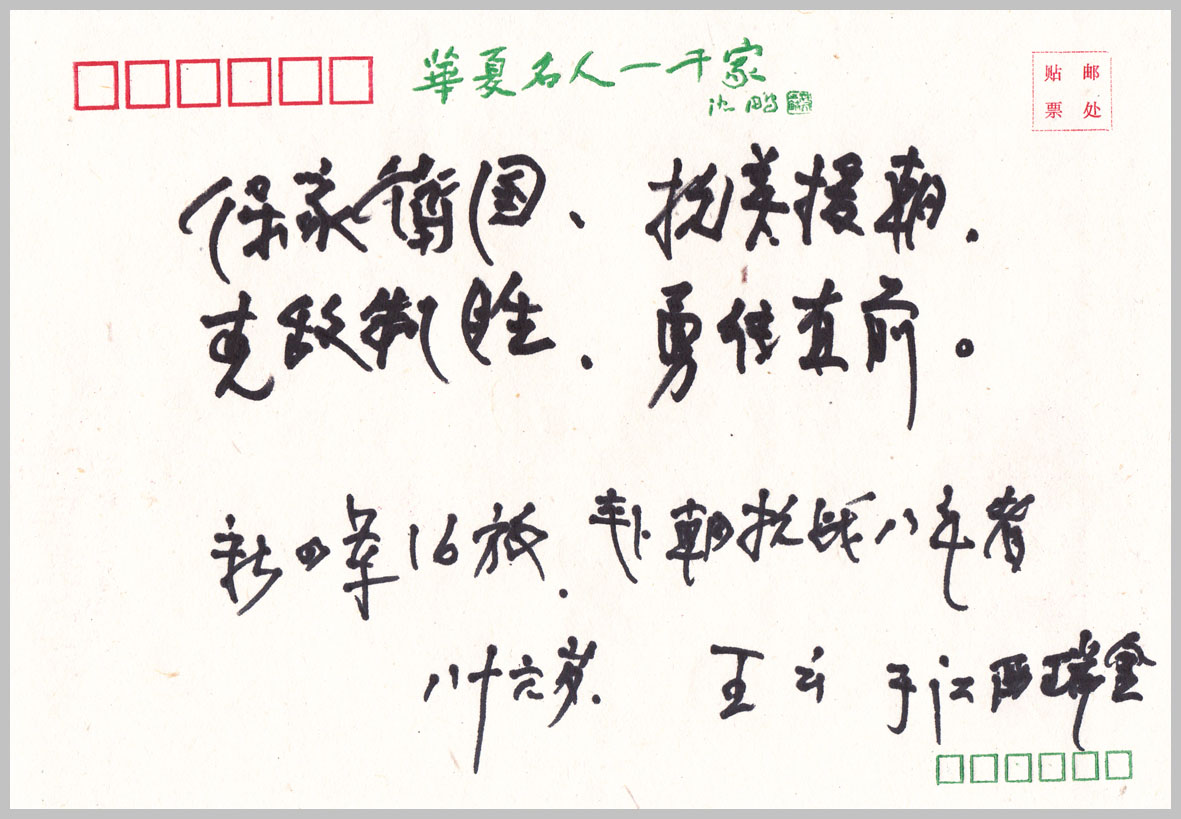 華夏名人一千家
沈鹏
贴 邮
票 处
保家衛国、抗美援朝.
克敌制胜.勇往直前。
新四军16旅.赴朝抗战八年者
八十六岁.王云 于江西瑞金